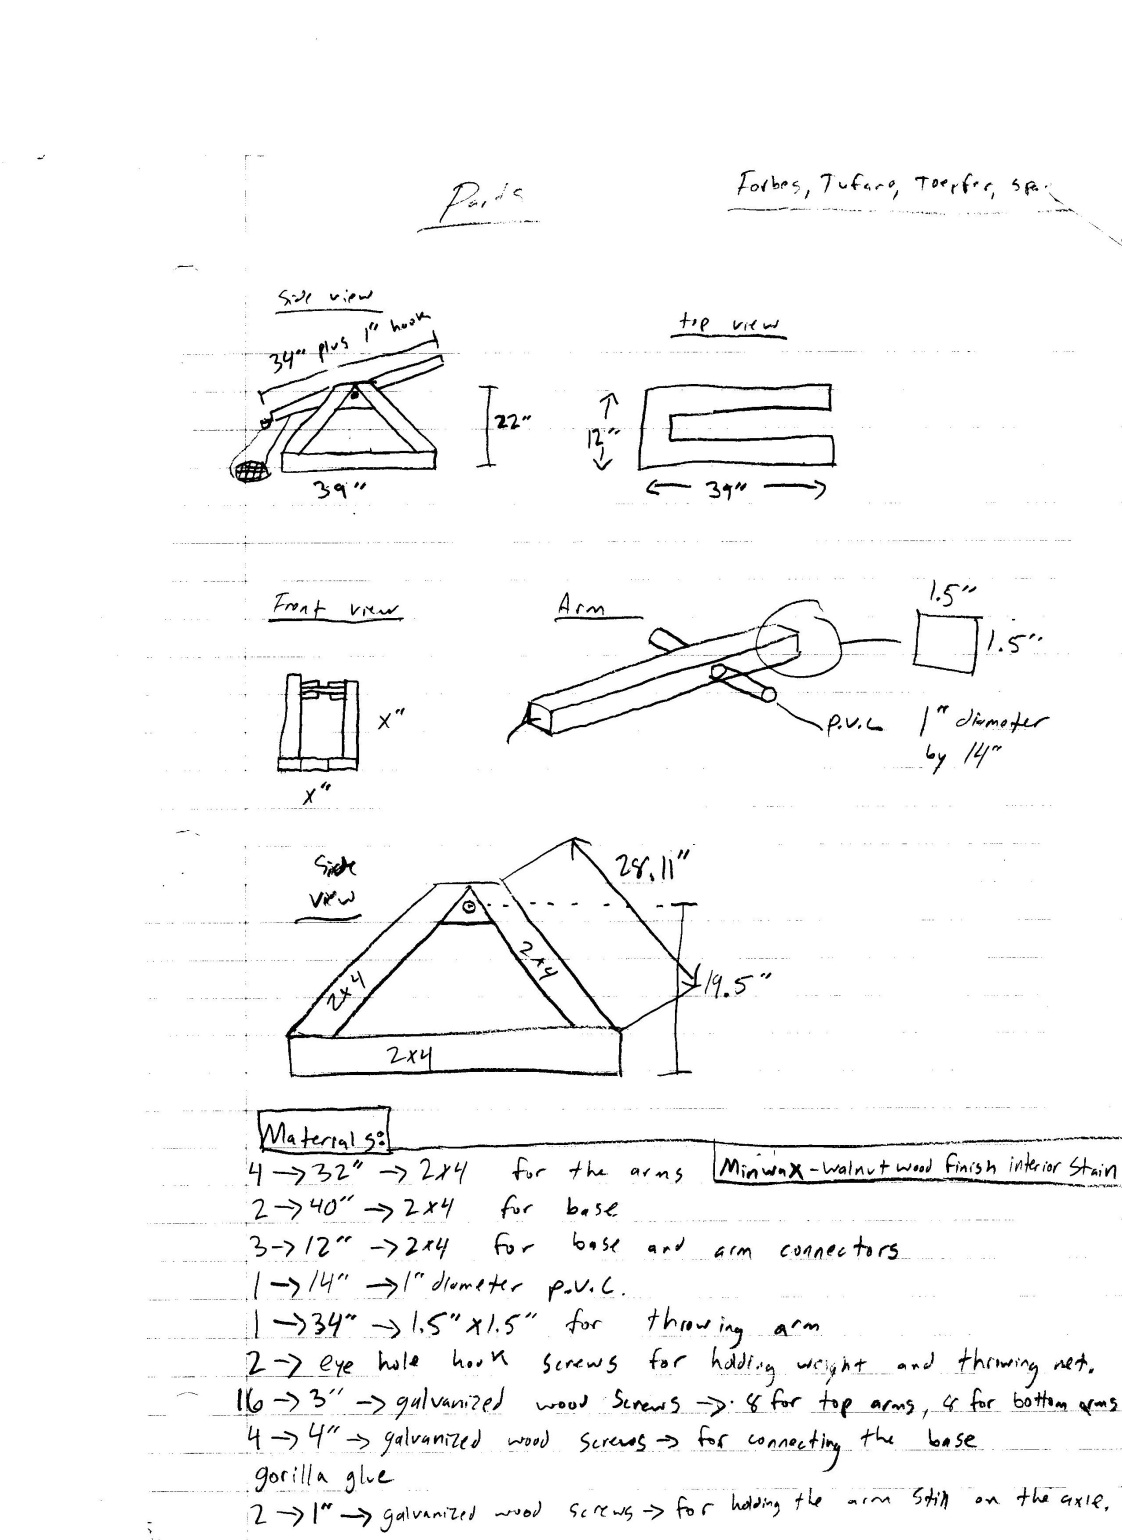 Parts
Forbes, Tufaro, Toepfer,
Side view
34" plus 1" hook
22"
39"
top view
12"
39"
Front view
x"
x"
Arm
1.5"
1.5"
P.V.C
1" diameter
by 14"
Side
view
28.11"
19.5"
2x4
2x4
2x4
Materials:
4 → 32" → 2x4 for the arms
Minwax - walnut wood finish interior stain
2 → 40" → 2x4 for base
3 → 12" → 2x4 for base and arm connectors
1 → 14" → 1" diameter p.v.c.
1 → 34" → 1.5" x 1.5" for throwing arm
2 → eye hole hook screws for holding weight and throwing net.
16 → 3" → galvanized wood screws → 8 for top arms, 8 for bottom arms
4 → 4" → galvanized wood screws → for connecting the base
gorilla glue
2 → 1" → galvanized wood screws → for holding the arm still on the axle.